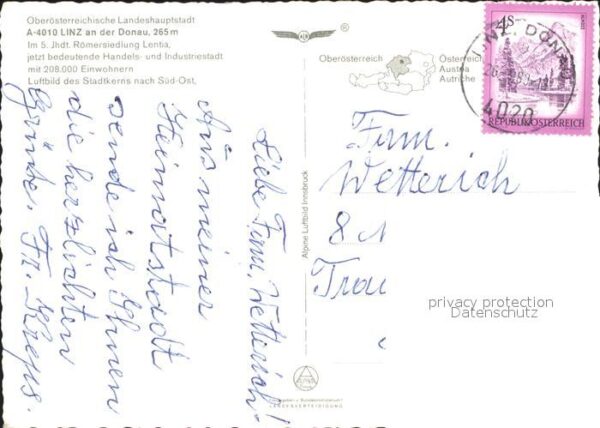 Oberösterreichische Landeshauptstadt
A-4010 LINZ an der Donau, 265 m
Im 5. Jhdt. Römersiedlung Lentia,
jetzt bedeutende Handels- und Industriestadt
mit 208.000 Einwohnern
Luftbild des Stadtkerns nach Süd-Ost,
Liebe Fam. Wetterich!
Aus meiner
Heimatstadt
sende ich Ihnen
die herzlichsten
Grüße. Fr. Kreps.
®
Oberösterreich
Österreich
Austria
Autriche
Alpine Luftbild Innsbruck
LANDESVERTEIDIGUNG
4S
REPUBLIK ÖSTERREICH
LINZ, DONAU
4020
Fam.
Wetterich
8
privacy protection
Datenschutz